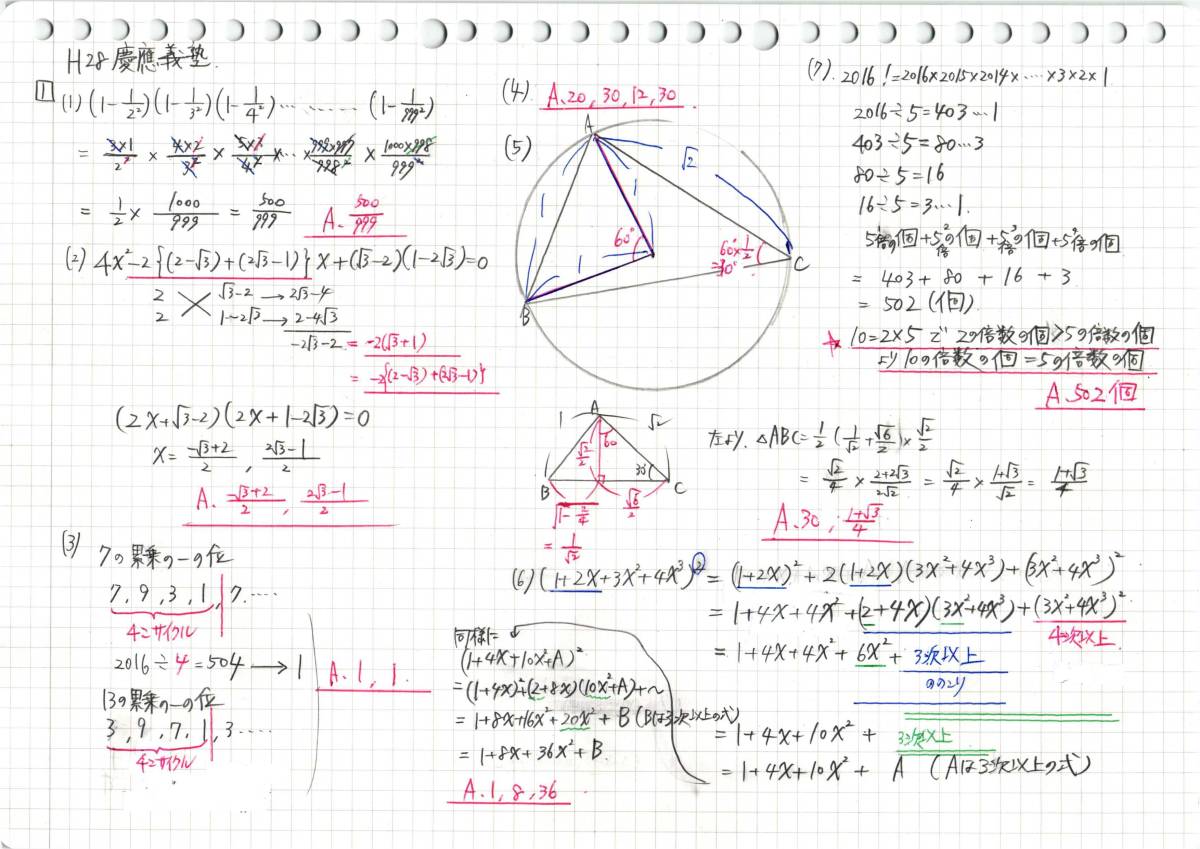 H28慶應義塾.
1
(1) (1-1/2²)(1-1/3²)(1-1/4²)………… (1-1/999²)
= 3×1/2² × 4×2/3² × 5×3/4² ×…× 999×997/998² × 1000×998/999²
= 1/2 × 1000/999 = 500/999
A. 500/999
(2) 4x²-2{(2-√3)+(2√3-1)}x+(√3-2)(1-2√3)=0
2 √3-2 → 2√3-4
2 1-2√3 → 2-4√3
-2√3-2 = -2(√3+1)
= -2{(2-√3)+(2√3-1)}
(2x+√3-2)(2x+1-2√3)=0
x= -√3+2/2 , 2√3-1/2
A. -√3+2/2 , 2√3-1/2
(3) 7の累乗の一の位
7,9,3,1,7.….
4コサイクル
2016÷4=504 → 1
13の累乗の一の位
3,9,7,1,3…..
4コサイクル
A.1,1.
(4) A.20,30,12,30
(5)
A
√2
1
1
1
60°
60°×1/2
=30°
B
C
A
1
√2
√2/2
60
30°
B
C
√1-2/4
√6/2
= 1/√2
左より. △ABC=1/2(1/√2+√6/2)×√2/2
= √2/4 × 2+2√3/2√2 = √2/4 × 1+√3/√2 = 1+√3/4
A.30, 1+√3/4
(6) (1+2x+3x²+4x³)² = (1+2x)²+2(1+2x)(3x²+4x³)+(3x²+4x³)²
= 1+4x+4x²+(2+4x)(3x²+4x³)+(3x²+4x³)²
4次以上
= 1+4x+4x²+6x²+3次以上
ののこり
3次以上
= 1+4x+10x²+
= 1+4x+10x²+ A (Aは3次以上の式)
同様に
(1+4x+10x²+A)²
=(1+4x)²+(2+8x)(10x²+A)+~
=1+8x+16x²+20x²+B (Bは3次以上の式)
=1+8x+36x²+B.
A.1,8,36
(7). 2016!=2016×2015×2014×…×3×2×1
2016÷5=403…1
403÷5=80…3
80÷5=16
16÷5=3…1.
5¹倍の個+5²倍の個+5³倍の個+5⁴倍の個
= 403+80+16+3
= 502(個)
★ 10=2×5で 2の倍数の個>5の倍数の個
より10の倍数の個=5の倍数の個
A.502個